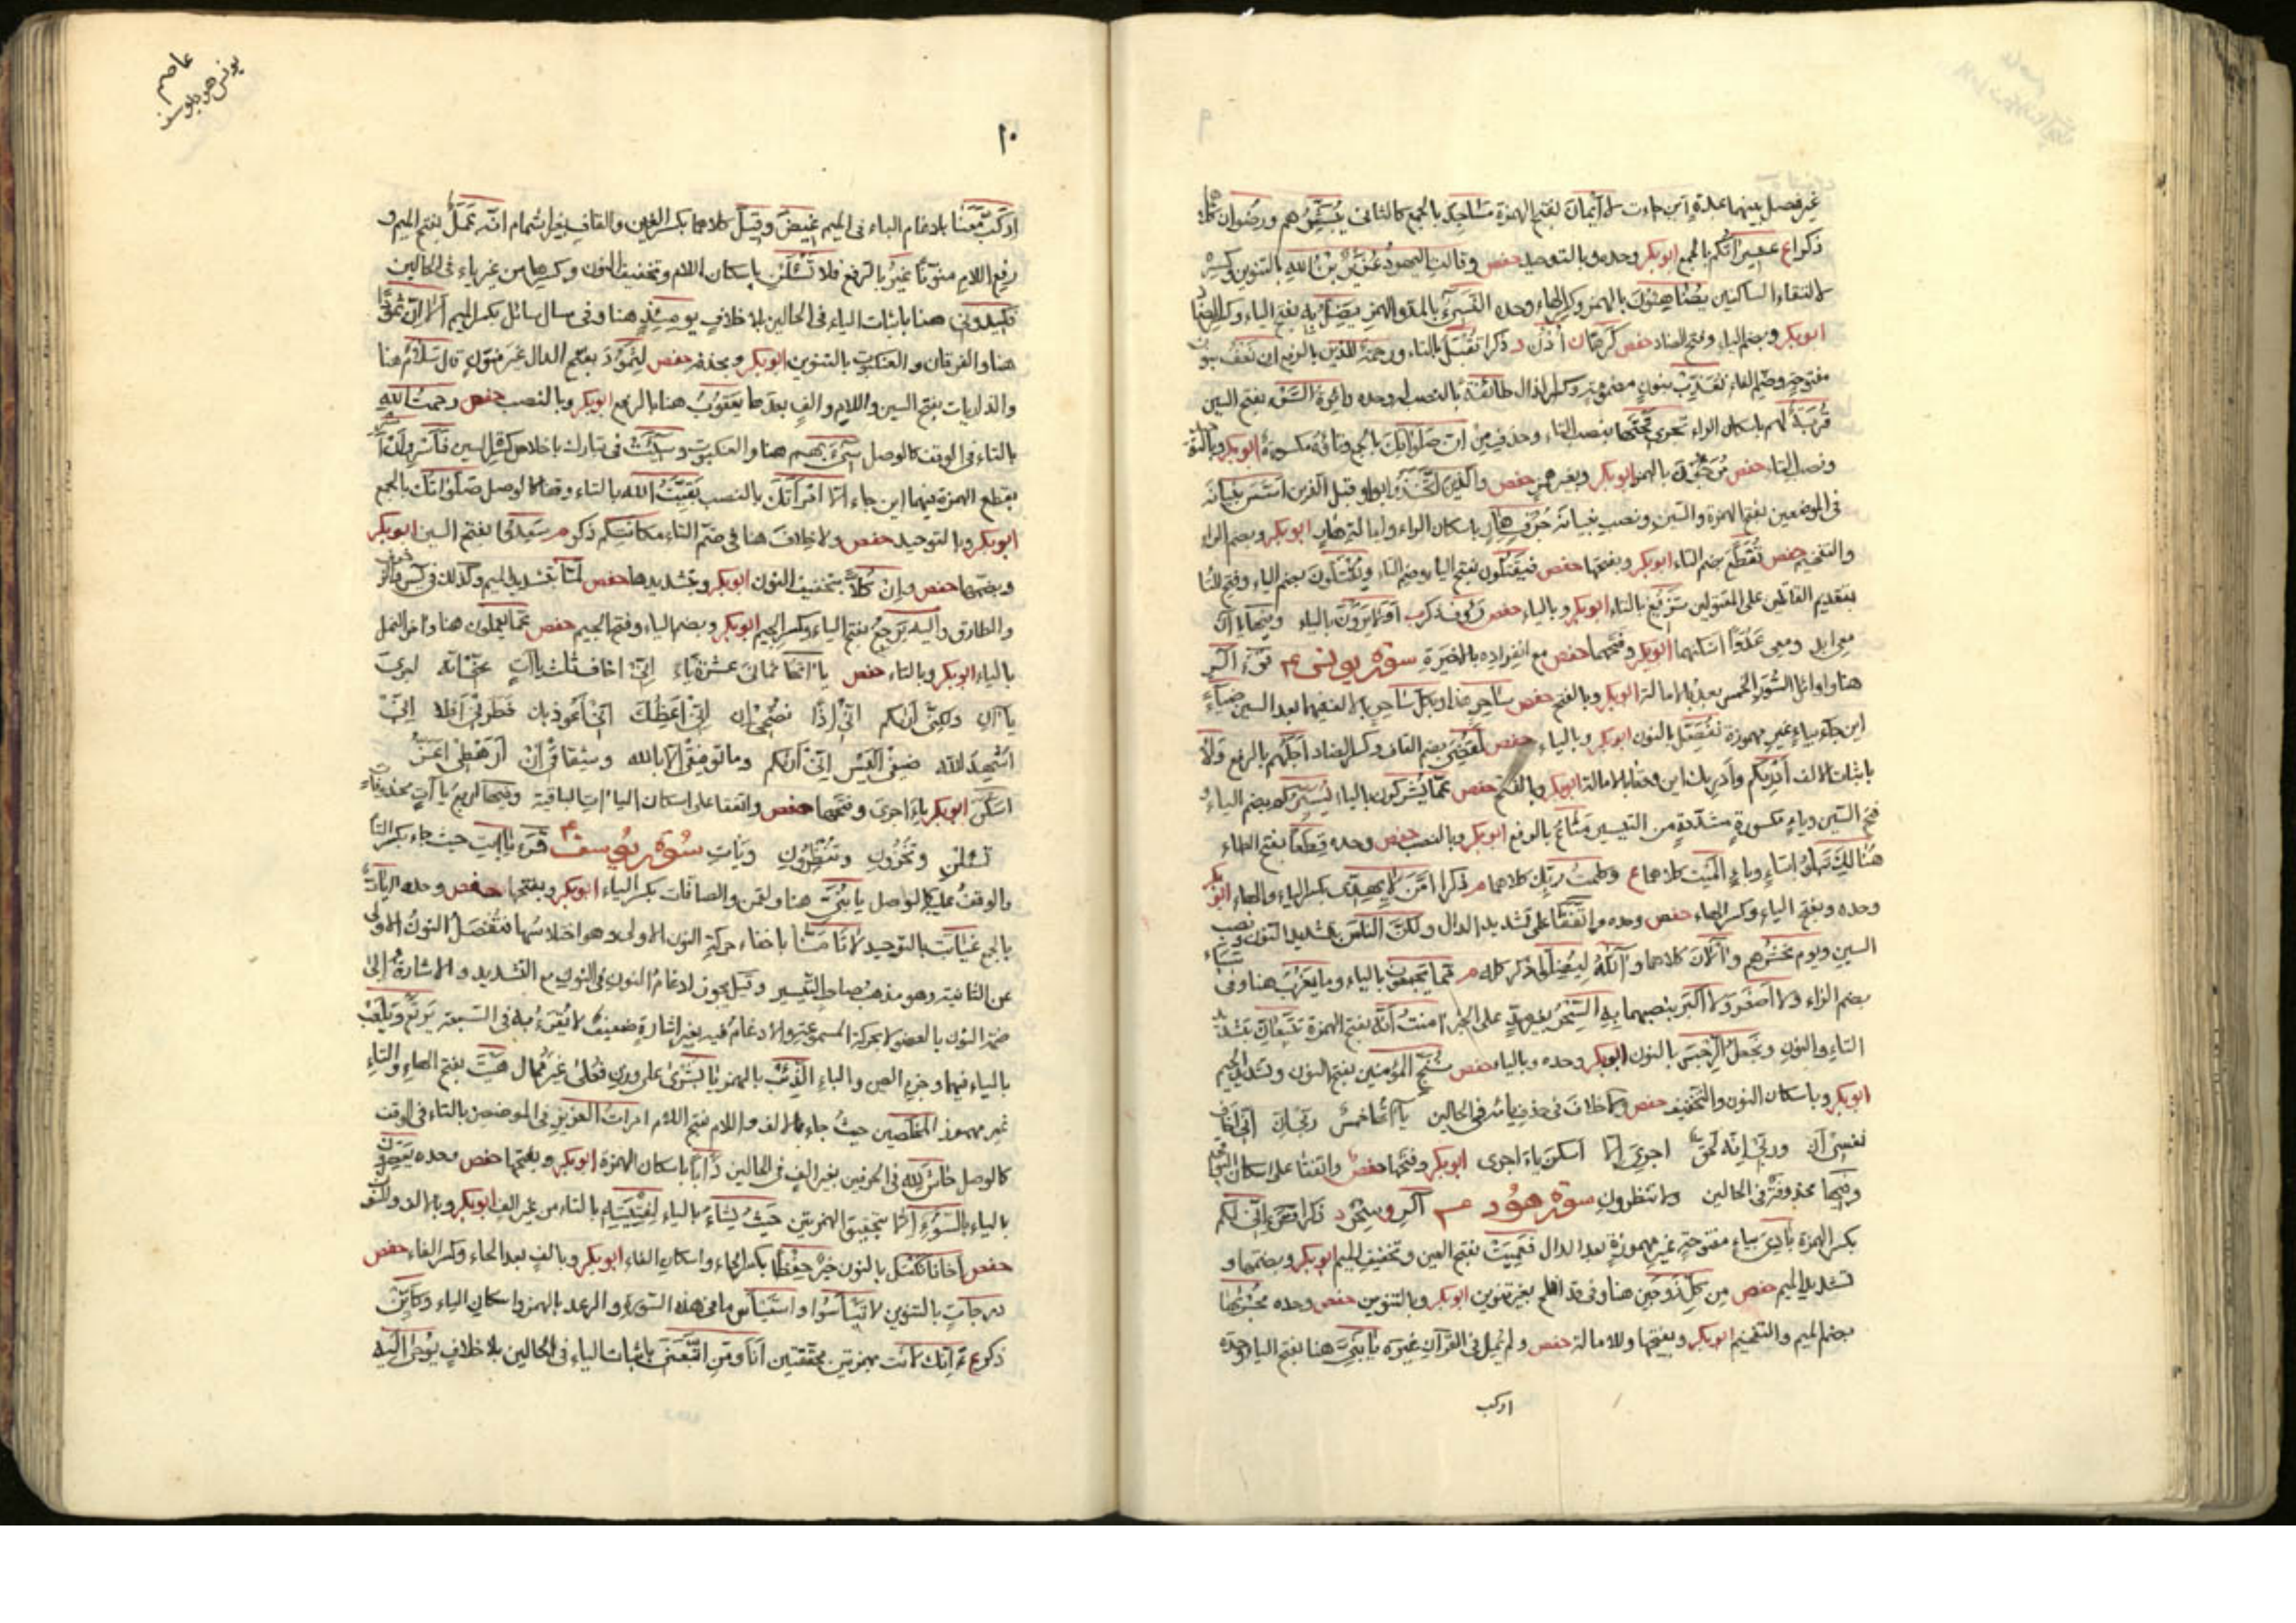 غير فصل بينهما بمدة اين جاءت لا أيمان بفتح الهمزة مساجد بالجمع كالثاني يبشرهم ورضوان كلا
ذكرا ع عشيراتكم بالجمع ابوبكر وحده وبالتوحيد حفص وقالت اليهود عزير بن الله بالتنوين وكسره
لالتقاء الساكنين يضاهئون بالهمز وكسر الهاء وحده النسيء بالمد والهمز يضل به بفتح الياء وكسر الضاد
ابوبكر وبضم الياء وفتح الضاد حفص كرها ن أذن د ذكرا تقبل بالتاء ورحمة للذين بالرفع ان نعف بنون
مفتوحة وضم الفاء نعذب بنون مضمومة وكسر الذال طائفة بالنصب وحده دائرة السوء بفتح السين
قربة لهم باسكان الراء تجري تحتها بنصب التاء وحذف من ان صلواتك بالجمع وتاؤه مكسورة ابوبكر وبالتوحيد
ونصب التاء حفص مرجؤن بالهمز ابوبكر وبغير همز حفص والذين اتخذوا بواو قبل الذين اسس بنيانه
في الموضعين بفتح الهمزة والسين ونصب بنيانه جرف هار باسكان الراء وامالة هار ابوبكر وبضم الراء
والتفخيم حفص تقطع بضم التاء ابوبكر وبفتحها حفص فيقتلون بفتح الياء وضم التاء ويقتلون بضم الياء وفتح التاء
بتقديم الفاعلين على المفعولين تزيغ بالتاء ابوبكر وبالياء حفص رؤف ذكرب اولا يرون بالياء وفيها يا آن
معي ابدا ومعي عدوا اسكنهما ابوبكر وفتحهما حفص مع انفراده بالاخيرة سورة يونس عم قرء الر
هنا واوائل السور الخمس بعد بالامالة ابوبكر وبالفتح حفص ساحر هذا وبكل ساحر بالف فيهما بعد السين ضياء
اين جاء بياء غير مهموزة نفصل بالنون ابوبكر وبالياء حفص لقضي بضم القاف وكسر الضاد اجلهم بالرفع ولا
باثبات الالف أدريكم وأدريك اين وقعا بالامالة ابوبكر وبالفتح حفص عما يشركون بالياء يسيركم بضم الياء و
فتح السين وياء مكسورة مشددة من التيسير متاع بالرفع ابوبكر وبالنصب حفص وحده قطعا بفتح الطاء
هنالك تبلو بتاء وباء الميت كلاهما ع وكلمت ربك كلاهما م ذكرا امن لا يهدي بكسر الياء والهاء ابوبكر
وحده وبفتح الياء وكسر الهاء حفص وحده واتفقا على تشديد الدال ولكن الناس بتشديد النون ونصب
السين ويوم نحشرهم و آلآن كلاهما و آلله ليضلوا ذكر كله م مما يجمعون بالياء وما يعزب هنا وفي سباء
بضم الزاء ولا اصغر ولا اكبر بنصبهما به السحر بغير مد على الخبر امنت أنه بفتح الهمزة تتبعان بتشديد
التاء والنون ونجعل الرجس بالنون ابوبكر وحده وبالياء حفص ننج المؤمنين بفتح النون وتشديد الجيم
ابوبكر وباسكان النون والتخفيف حفص ولا خلاف في حذف يائه في الحالين ياآتها خمس ربي ان اني اخاف
نفسي ان وربي إنه لحق اجري الا اسكن ياء اجري ابوبكر وفتحها حفص واتفقا على اسكان البواقي
وفيها محذوفة في الحالين ولا تنظرون سورة هود عم الر و سحر د ذكرا قرء إني لكم
بكسر الهمزة بادي بياء مفتوحة غير مهموزة بعد الدال فعميت بفتح العين وتخفيف الميم ابوبكر وبضمها و
تشديد الميم حفص من كل زوجين هنا وفي قد افلح بغير تنوين ابوبكر وبالتنوين حفص وحده مجريها
بضم الميم والتفخيم ابوبكر وبفتحها وللامالة حفص ولم يمل في القرآن غيره يابني هنا بفتح الياء وحده
اركب
عاصم
يونس هود يوسف
١٠
اركب معنا بادغام الباء في الميم غيض وقيل كلاهما بكسر الغين والقاف بغير اشمام انه عمل بفتح الميم و
رفع اللام منونا غير بالرفع فلا تسئلن باسكان اللام وتخفيف النون وكسرها من غير ياء في الحالين
فكيدوني هنا باثبات الياء في الحالين بلا خلاف يومئذ هنا وفي سال سائل بكسر الميم ألا ان ثمودا
هنا والفرقان والعنكبوت بالتنوين ابوبكر وبحذفه حفص لثمود بفتح الدال غير منون قال سلام هنا
والذاريات بفتح السين واللام والف بعدها يعقوب هنا بالرفع ابوبكر وبالنصب حفص رحمت الله
بالتاء في الوقف كالوصل سيء بهم هنا والعنكبوت وسيئت في تبارك باخلاص كسر السين فأسر وأن أسر
بقطع الهمزة فيهما اين جاء الا امرأتك بالنصب بقيت الله بالتاء وقفا كالوصل صلواتك بالجمع
ابوبكر وبالتوحيد حفص ولا خلاف هنا في ضم التاء مكانتكم ذكر م سعدوا بفتح السين ابوبكر
وبضمها حفص وإن كلا بتخفيف النون ابوبكر وبتشديدها حفص لما بتشديد الميم وكذلك في يس والزخرف
والطارق واليه يرجع بفتح الياء وكسر الجيم ابوبكر وبضم الياء وفتح الجيم حفص عما يعملون هنا وآخر النمل
بالياء ابوبكر وبالتاء حفص ياآتها ثماني عشرة ياء إني اخاف ثلث ياآت عني انه لفرح
ياآن ولكني أريكم اني إذا نصحي إن إني أعظك اني أعوذ بك فطرني أفلا إني
اشهد الله ضيفي أليس اني أريكم وما توفيقي الا بالله وشقاقي أن أرهطي اعز
اسكن ابوبكر ياء اجري وفتحها حفص واتفقا على اسكان الياءات الباقية وفيها اربع ياآت محذوفات
تسئلن وتخزون وتنظرون ويأت سورة يوسف عم قرء ياأبت حيث جاء بكسر التاء
والوقف عليه كالوصل يابني هنا ولقمن والصافات بكسر الياء ابوبكر وبفتحها حفص وحده آيات
بالجمع غيابت بالتوحيد لا تأمنا باخفاء حركة النون الاولى وهو اختلاسها فتفصل النون الاولى
عن الثانية وهو مذهب صاحب التيسير وقيل يجوز ادغام النون في النون مع التشديد والاشارة إلى
ضمة النون بالعضو لا بحركة المسموعة والادغام فيه بغير اشارة ضعيف لا يقرء به في السبعة يرتع ويلعب
بالياء فيهما وجزم العين والباء الذئب بالهمز يا بشرى على وزن فعلى غير ممال هيت بفتح الهاء والتاء
غير مهموز المخلصين حيث جاء بالالف واللام بفتح اللام امرات العزيز في الموضعين بالتاء في الوقف
كالوصل حاش لله في الحرفين بغير الف في الحالين دأبا باسكان الهمزة ابوبكر وبفتحها حفص وحده يعصرون
بالياء بالسوء إلا بتحقيق الهمزتين حيث يشاء بالياء لفتيته بالتاء من غير الف ابوبكر وبالالف والنون
حفص أخانا نكتل بالنون خير حفظا بكسر الحاء واسكان الفاء ابوبكر وبالف بعد الحاء وكسر الفاء حفص
درجات بالتنوين لا تيأسوا واستيأس وما في هذه السورة والرعد بالهمز واسكان الياء وكأين
ذكر ع م ائنك لأنت بهمزتين محققتين أنا ومن اتبعني باثبات الياء في الحالين بلا خلاف يوحى اليه